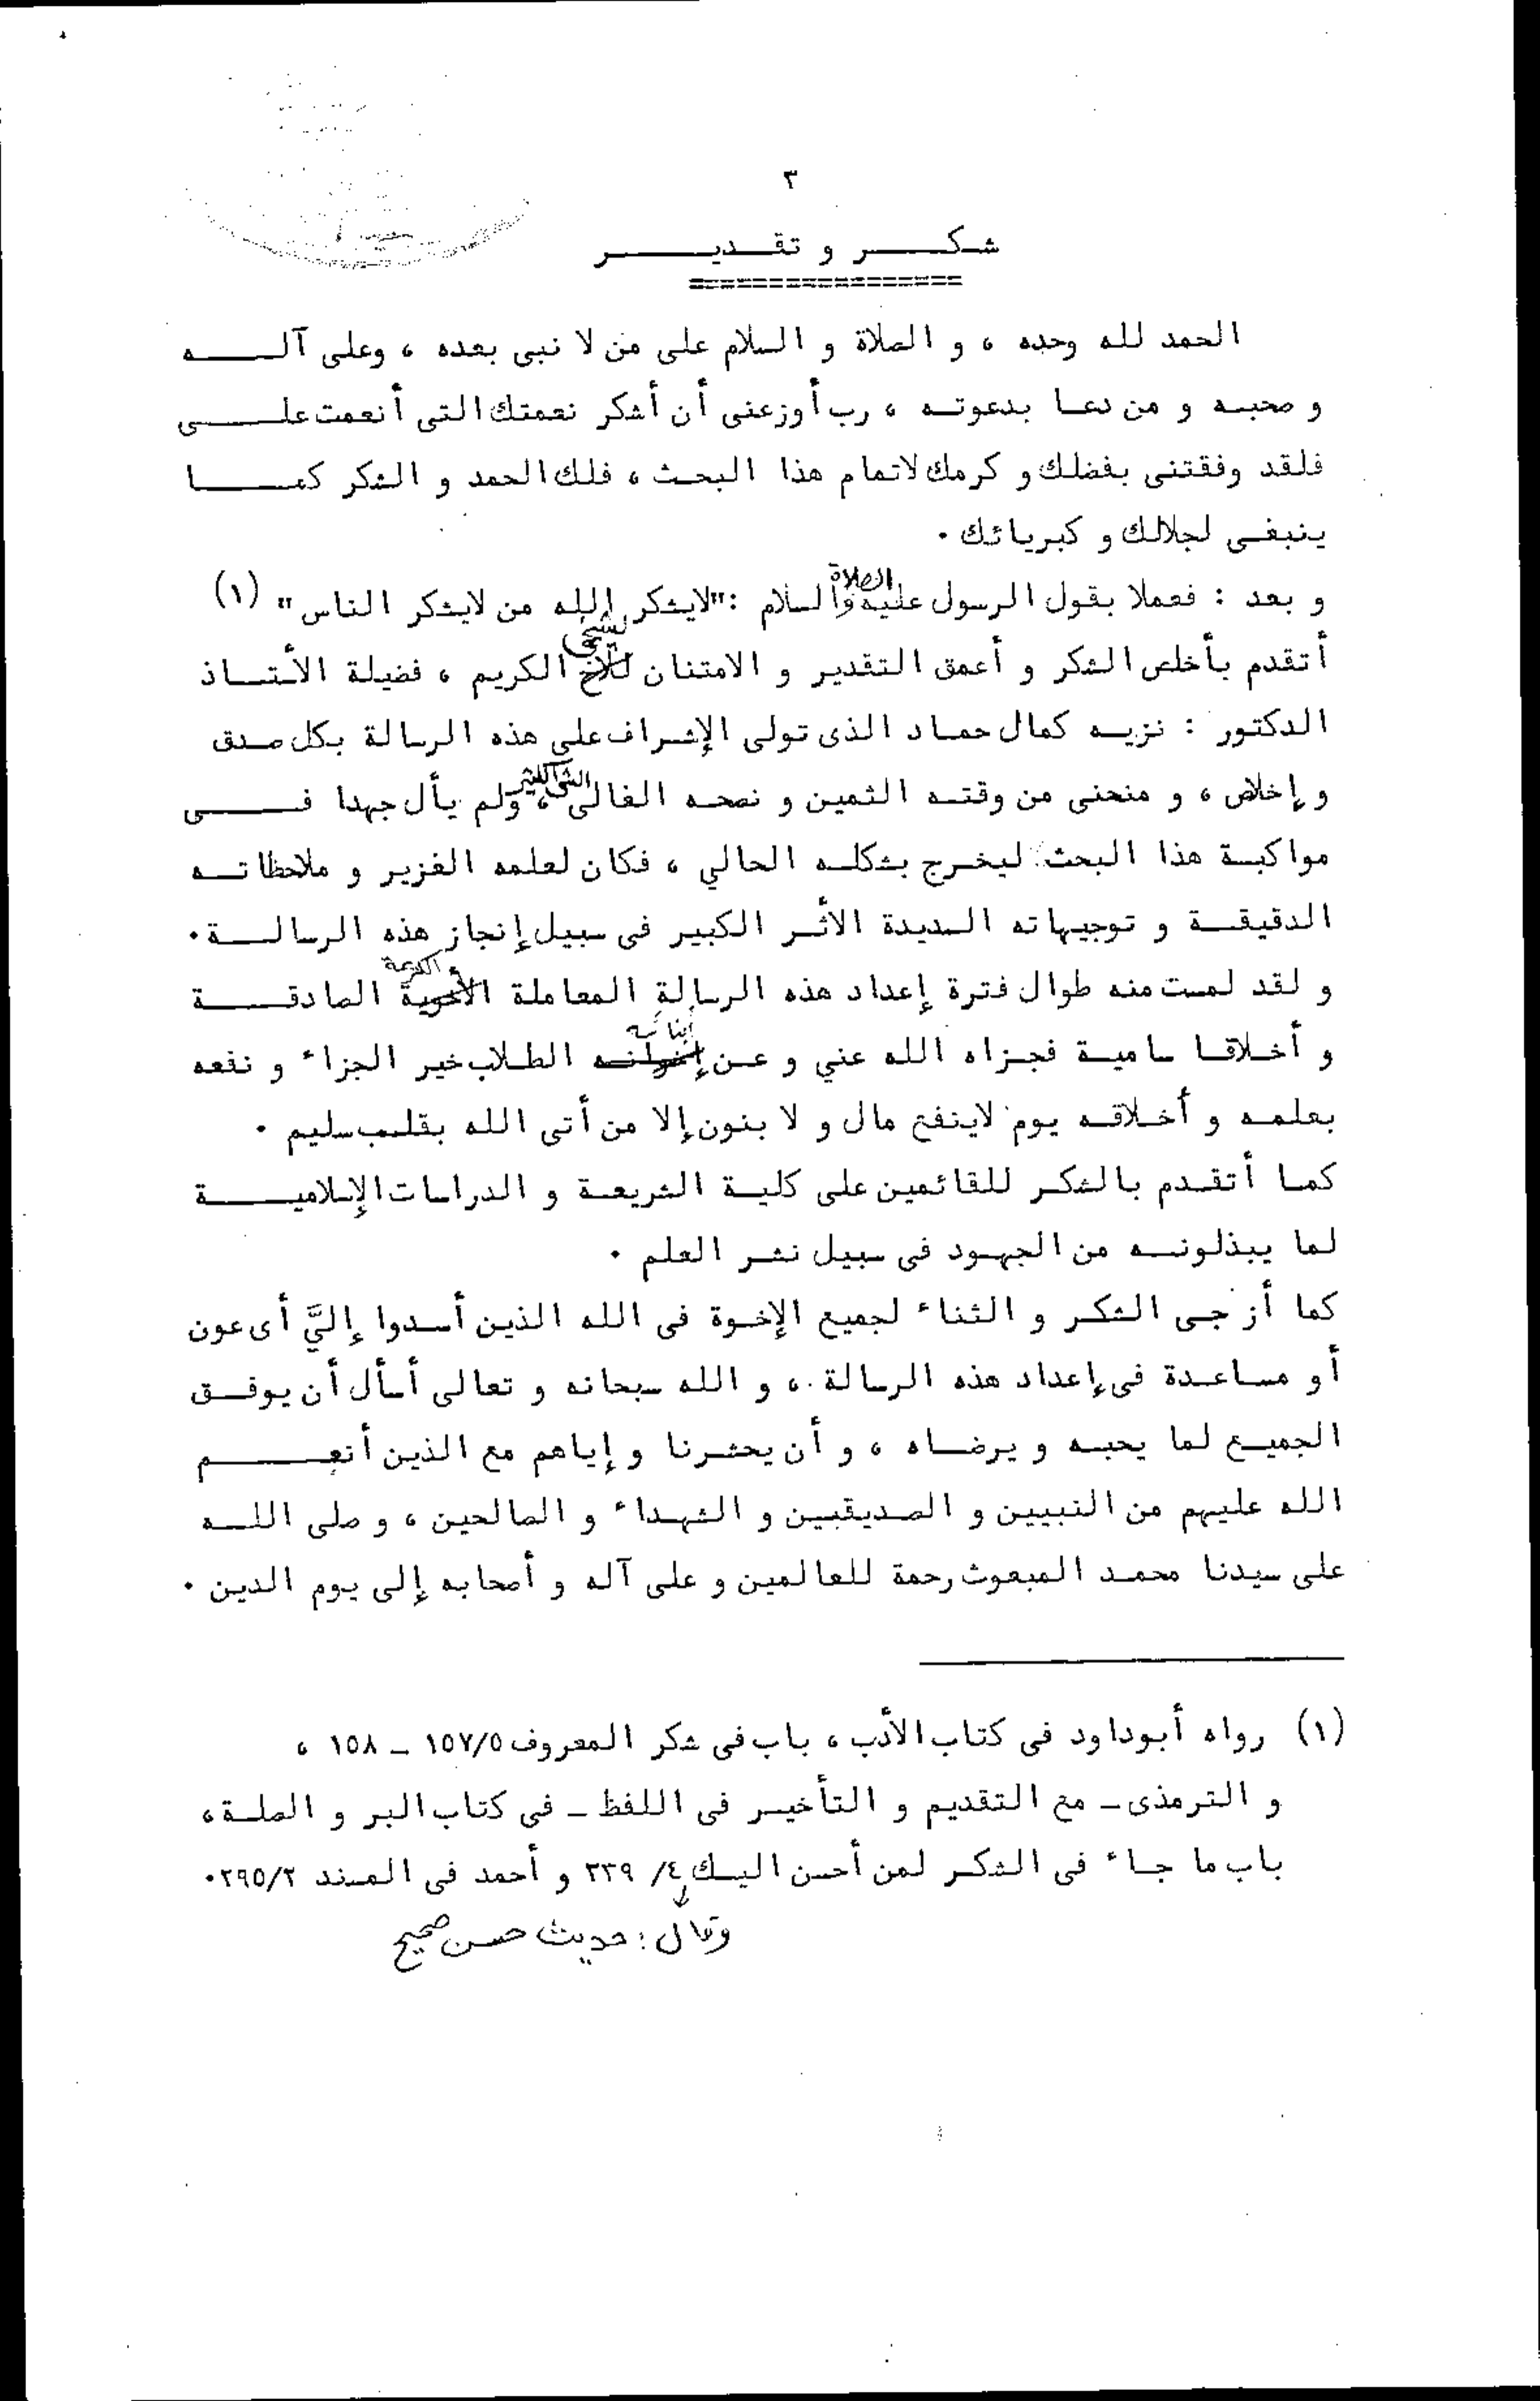 ٣
شكر و تقدير
الحمد لله وحده ، و الصلاة و السلام على من لا نبى بعده ، وعلى آله
و صحبه و من دعا بدعوته ، رب أوزعنى أن أشكر نعمتك التى أنعمت على
فلقد وفقتنى بفضلك و كرمك لاتمام هذا البحث ، فلك الحمد و الشكر كما
ينبغى لجلالك و كبريائك .
و بعد : فعملا بقول الرسول عليه الصلاة والسلام : "لايشكر الله من لايشكر الناس" (١)
أتقدم بأخلص الشكر و أعمق التقدير و الامتنان للأخ لشيخي الكريم ، فضيلة الأستاذ
الدكتور : نزيه كمال حماد الذى تولى الإشراف على هذه الرسالة بكل صدق
و إخلاص ، و منحنى من وقته الثمين و نصحه الغالى الشئ الكثير ، ولم يأل جهدا فى
مواكبة هذا البحث ليخرج بشكله الحالي ، فكان لعلمه الغزير و ملاحظاته
الدقيقة و توجيهاته السديدة الأثر الكبير فى سبيل إنجاز هذه الرسالة .
و لقد لمست منه طوال فترة إعداد هذه الرسالة المعاملة الأخوية الكريمة الصادقة
و أخلاقا سامية فجزاه الله عني و عن إخوانه أبنائه الطلاب خير الجزاء و نفعه
بعلمه و أخلاقه يوم لاينفع مال و لا بنون إلا من أتى الله بقلب سليم .
كما أتقدم بالشكر للقائمين على كلية الشريعة و الدراسات الإسلامية
لما يبذلونه من الجهود فى سبيل نشر العلم .
كما أزجى الشكر و الثناء لجميع الإخوة فى الله الذين أسدوا إليَّ أى عون
أو مساعدة فى إعداد هذه الرسالة ، و الله سبحانه و تعالى أسأل أن يوفق
الجميع لما يحبه و يرضاه ، و أن يحشرنا و إياهم مع الذين أنعم
الله عليهم من النبيين و الصديقيين و الشهداء و الصالحين ، و صلى الله
على سيدنا محمد المبعوث رحمة للعالمين و على آله و أصحابه إلى يوم الدين .
(١) رواه أبوداود فى كتاب الأدب ، باب فى شكر المعروف ١٥٧/٥ ـ ١٥٨ ،
و الترمذى ـ مع التقديم و التأخير فى اللفظ ـ فى كتاب البر و الصلة ،
باب ما جاء فى الشكر لمن أحسن اليك ٤/ ٣٣٩ و أحمد فى المسند ٢٩٥/٢ .
وقال : حديث حسن صحيح